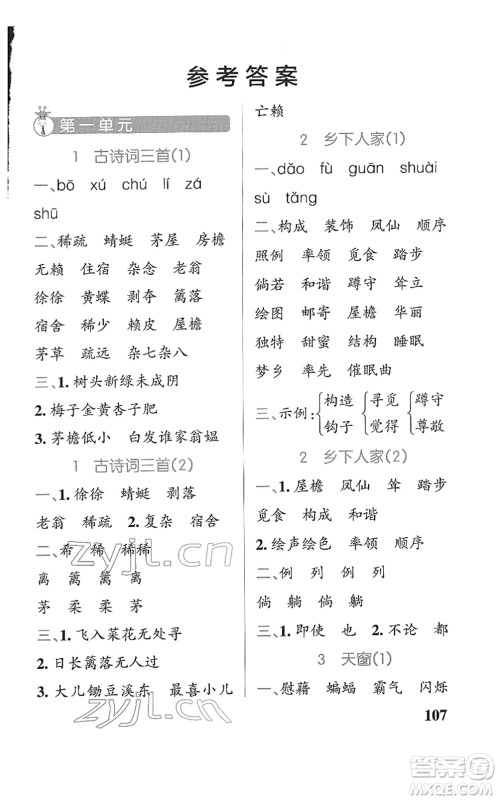 参考答案
第一单元
1 古诗词三首(1)
一、bō xú chú lí zá
shū
二、稀疏 蜻蜓 茅屋 房檐
无赖 住宿 杂念 老翁
徐徐 黄蝶 剥夺 篱落
宿舍 稀少 赖皮 屋檐
茅草 疏远 杂七杂八
三、1.树头新绿未成阴
2.梅子金黄杏子肥
3.茅檐低小 白发谁家翁媪
1 古诗词三首(2)
一、1.徐徐 蜻蜓 剥落
老翁 稀疏 2.复杂 宿舍
二、布 稀 稀稀
离 篱 篱
茅 柔 柔 茅
三、1.飞入菜花无处寻
2.日长篱落无人过
3.大儿锄豆溪东 最喜小儿
亡赖
2 乡下人家(1)
一、dǎo fù guān shuài
sù tǎng
二、构成 装饰 凤仙 顺序
照例 率领 觅食 踏步
倘若 和谐 蹲守 耸立
绘图 邮寄 屋檐 华丽
独特 甜蜜 结构 睡眠
梦乡 率先 催眠曲
三、示例:{构造 {寻觅 {蹲守
钩子 觉得 尊敬
2 乡下人家(2)
一、1.屋檐 凤仙 耸 踏步
觅食 构成 和谐
2.绘声绘色 率领 顺序
二、例 列 例 列
倘 躺 倘 躺
三、1.即使 也 2.不论 都
3 天窗(1)
一、慰藉 蝙蝠 霸气 闪烁
107
zyjl.cn